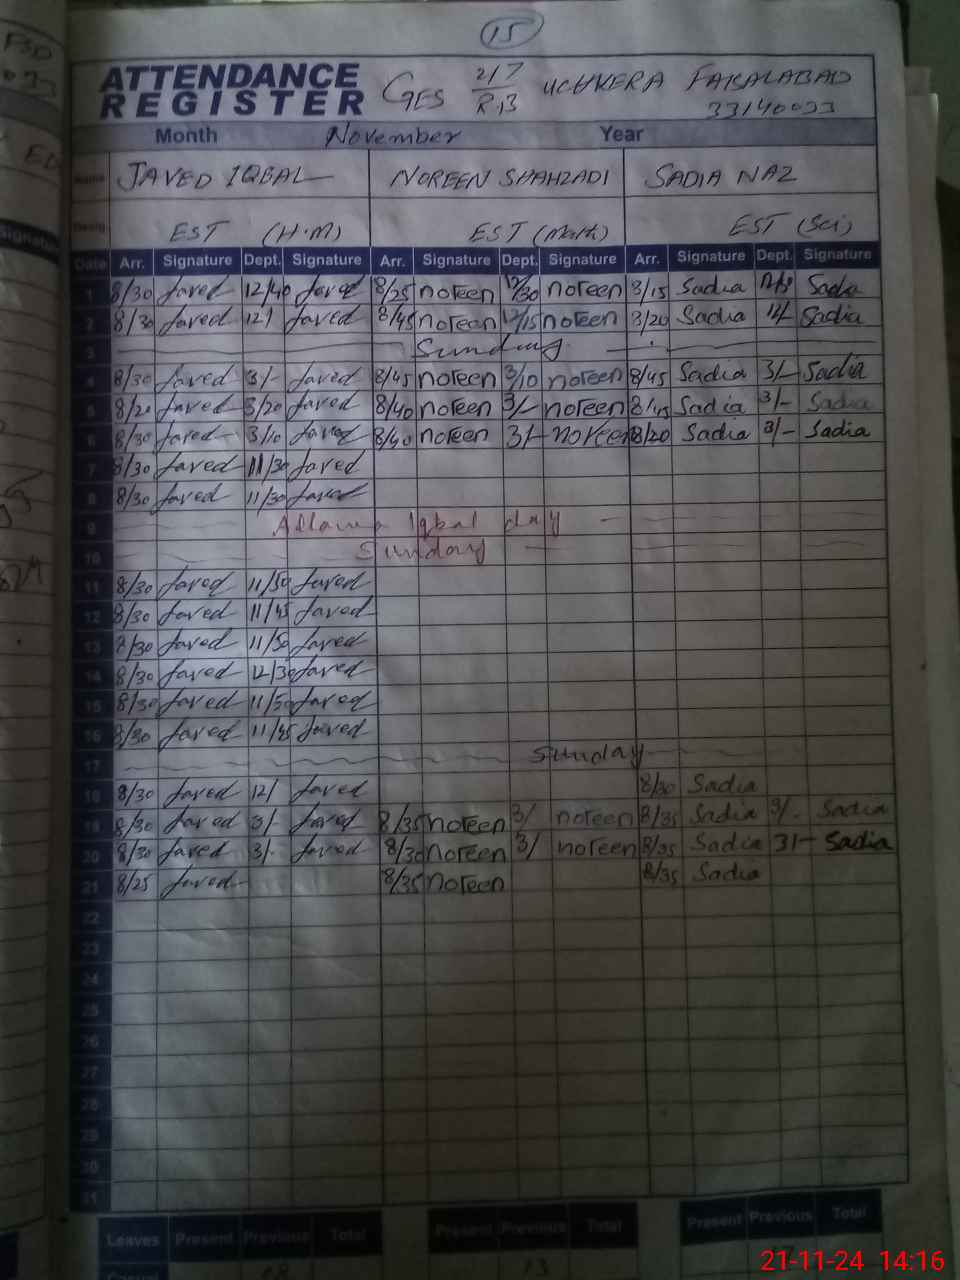 15
ATTENDANCE REGISTER GES 217 R.B UCHKERA FAISALABAD
33140033
Month November Year
Name JAVED IQBAL NOREEN SHAHZADI SADIA NAZ
Desig. EST (H.M) EST (Math) EST (Sci)
Date Arr. Signature Dept. Signature Arr. Signature Dept. Signature Arr. Signature Dept. Signature
1 8/30 Javed 12/40 Javed 8/25 noreen 12/30 noreen 8/15 Sadia Sadia
2 8/30 Javed 12/ Javed 8/45 noreen 12/15 noreen 8/20 Sadia Sadia
3 Sunday
4 8/30 Javed 3/- Javed 8/45 noreen 3/10 noreen 8/45 Sadia 3/- Sadia
5 8/20 Javed 3/20 Javed 8/40 noreen 3/- noreen 8/45 Sadia 3/- Sadia
6 8/30 Javed 3/10 Javed 8/40 noreen 3/- noreen 8/20 Sadia 3/- Sadia
7 8/30 Javed 11/30 Javed
8 8/30 Javed 11/30 Javed
9 Allama Iqbal day
10 Sunday
11 8/30 Javed 11/50 Javed
12 8/30 Javed 11/45 Javed
13 8/30 Javed 11/50 Javed
14 8/30 Javed 12/30 Javed
15 8/30 Javed 11/50 Javed
16 8/30 Javed 11/45 Javed
17 Sunday
18 8/30 Javed 12/ Javed 8/30 Sadia
19 8/30 Javed 3/- Javed 8/35 noreen 3/ noreen 8/35 Sadia 3/- Sadia
20 8/30 Javed 3/- Javed 8/30 noreen 3/ noreen 8/35 Sadia 3/- Sadia
21 8/25 Javed 8/35 noreen 8/35 Sadia
22
23
24
25
26
27
28
29
30
31
Leaves Present Previous Total Present Previous Total Present Previous Total
Casual 13
21-11-24 14:16